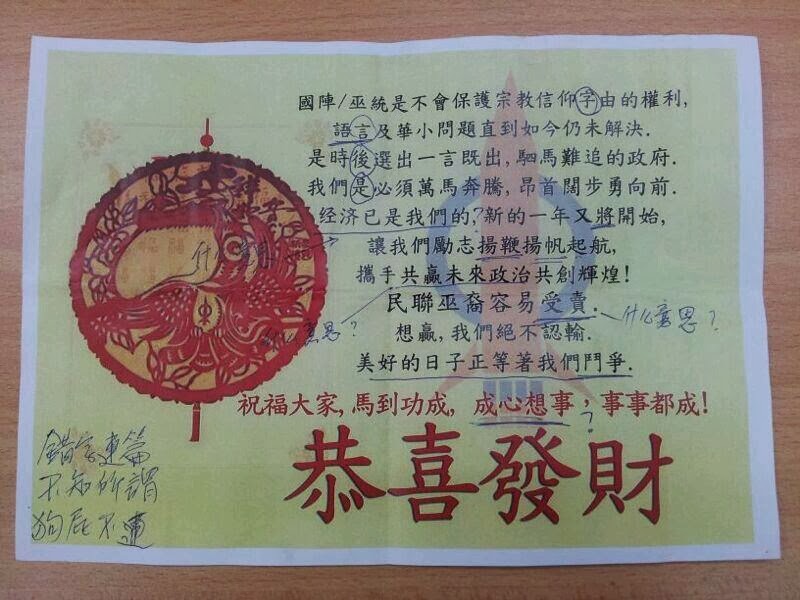 國陣/巫統是不會保護宗教信仰字由的權利,
語言及華小問題直到如今仍未解決.
是時後選出一言既出, 駟馬難追的政府.
我們是必須萬馬奔騰, 昂首闊步勇向前.
经济已是我們的, 新的一年又將開始,
讓我們勵志揚鞭揚帆起航,
攜手共贏未來政治共創輝煌!
民聯巫裔容易受責.
想贏, 我們絕不認輸.
美好的日子正等著我們鬥爭.
祝福大家, 馬到功成, 成心想事, 事事都成!
恭喜發財
什么意思
什么意思?
什么意思?
?
?
錯字連篇
不知所謂
狗屁不通